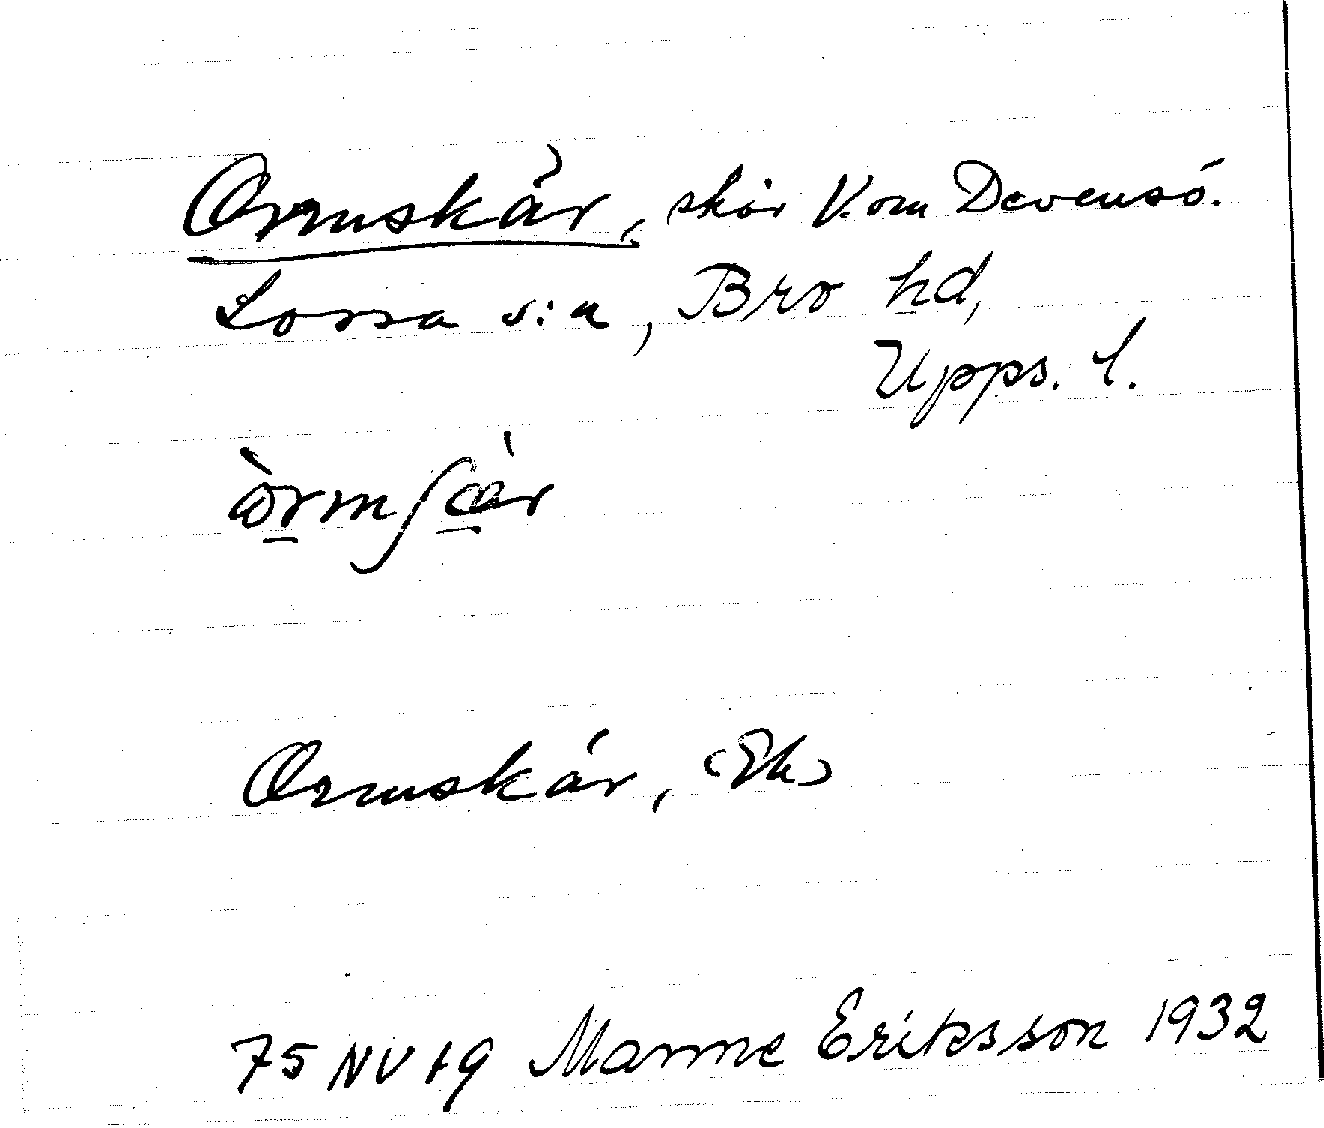 Ormskär, skär V. om Devensö.
Lossa s:n, Bro hd,
Upps. l.
Ormskär, (Ek)
75 NV 19 Manne Eriksson 1932